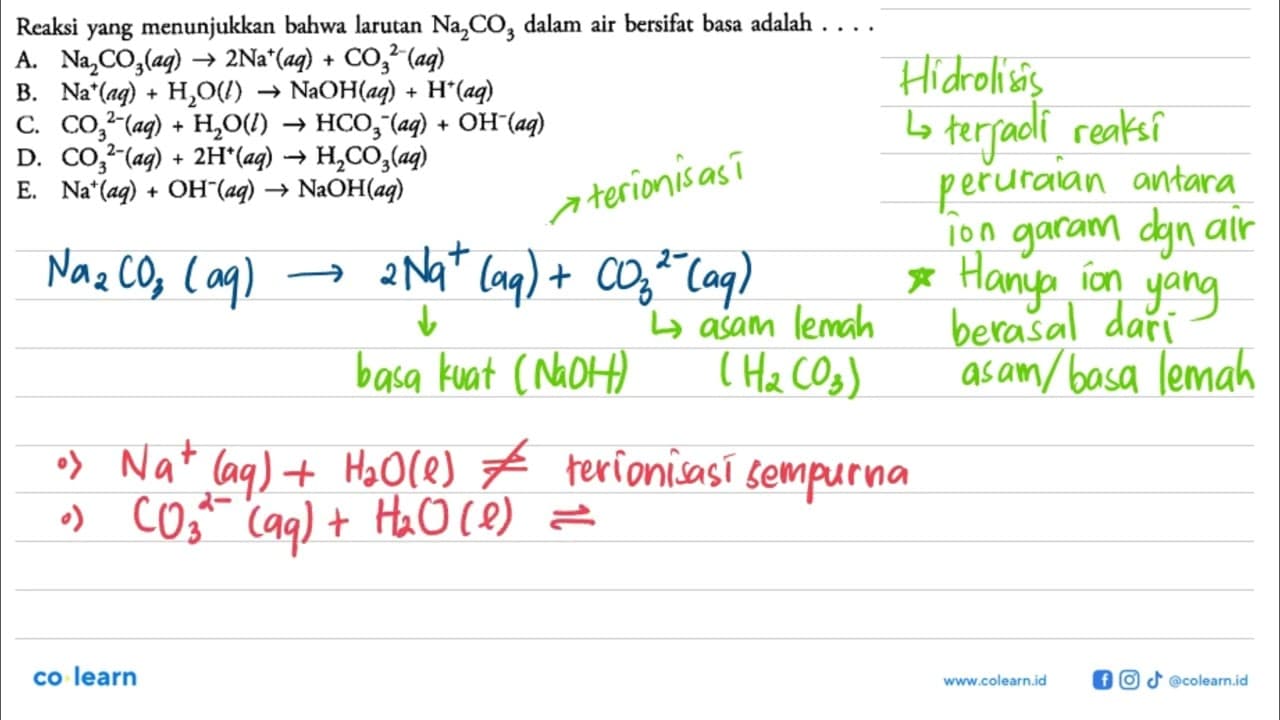 Reaksi yang menunjukkan bahwa larutan Na₂CO₃ dalam air bersifat basa adalah . . . .
A. Na₂CO₃(aq) → 2Na⁺(aq) + CO₃²⁻(aq)
B. Na⁺(aq) + H₂O(l) → NaOH(aq) + H⁺(aq)
C. CO₃²⁻(aq) + H₂O(l) → HCO₃⁻(aq) + OH⁻(aq)
D. CO₃²⁻(aq) + 2H⁺(aq) → H₂CO₃(aq)
E. Na⁺(aq) + OH⁻(aq) → NaOH(aq)
Hidrolisis
↳ terjadi reaksi
peruraian antara
ion garam dgn air
★ Hanya ion yang
berasal dari
asam/basa lemah
↗ terionisasi
Na₂CO₃ (aq) → 2Na⁺ (aq) + CO₃²⁻ (aq)
↓ ↳ asam lemah
basa kuat (NaOH) (H₂CO₃)
•) Na⁺ (aq) + H₂O(l) ≠ terionisasi sempurna
•) CO₃²⁻ (aq) + H₂O(l) ⇌
co learn
www.colearn.id @colearn.id